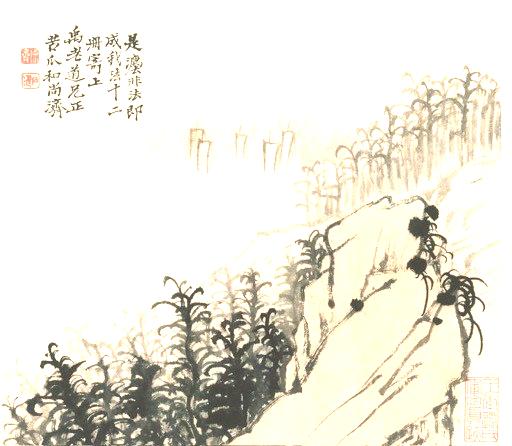 是灋非法即
成我法十二
冊寄上
禹老道兄正
苦瓜和尚濟